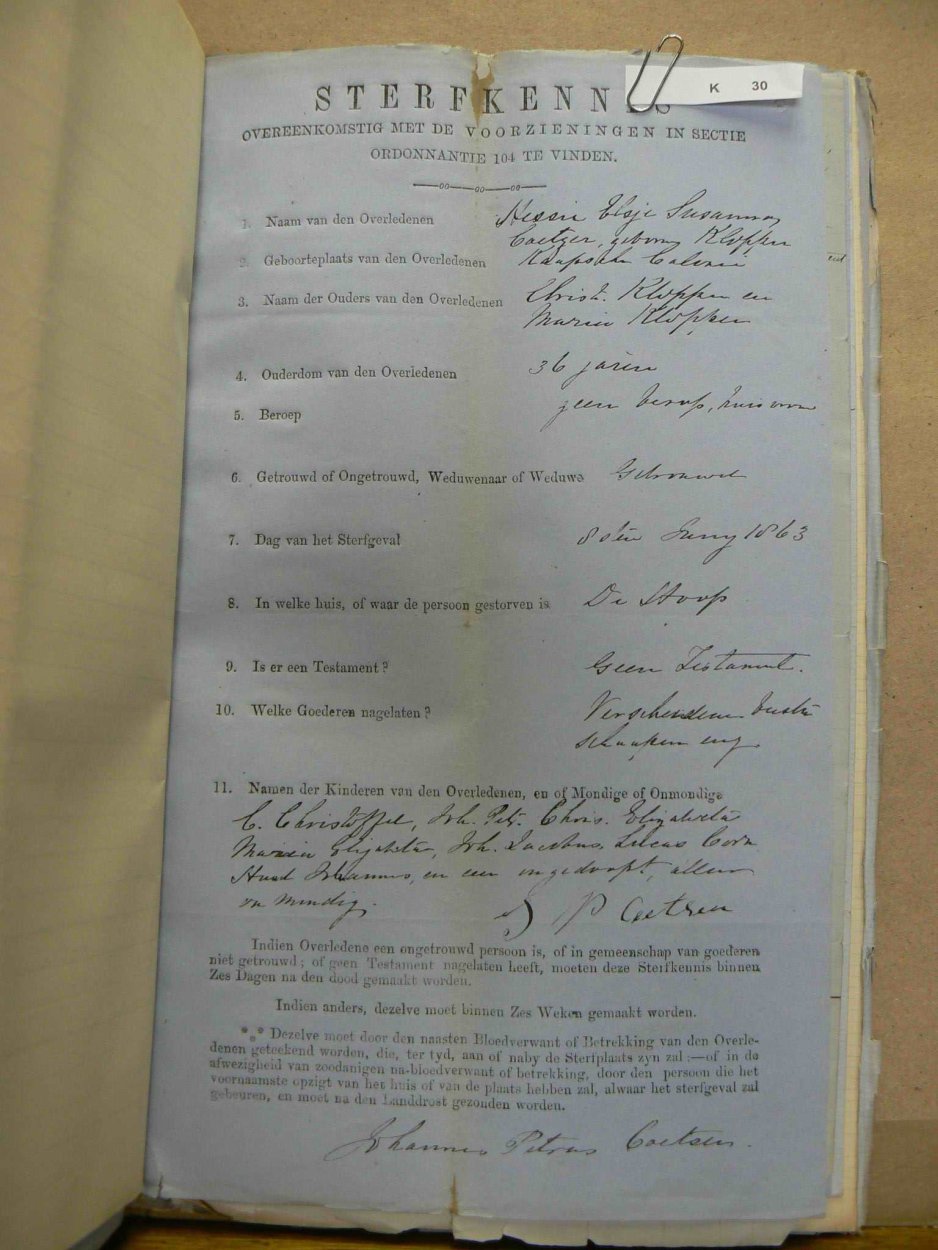 K 30
STERFKENNIS
OVEREENKOMSTIG MET DE VOORZIENINGEN IN SECTIE
ORDONNANTIE 104 TE VINDEN.
1. Naam van den Overledenen Hessie Elsje Susanna
Coetzer, geboren Klopper
2. Geboorteplaats van den Overledenen Kaapsche Colonie
3. Naam der Ouders van den Overledenen Christ. Klopper en
Maria Klopper
4. Ouderdom van den Overledenen 36 jaren
5. Beroep geen beroep, huisvrou
6. Getrouwd of Ongetrouwd, Weduwenaar of Weduwe Getrouwd
7. Dag van het Sterfgeval 8sten Juny 1863
8. In welke huis, of waar de persoon gestorven is De Hoop
9. Is er een Testament? Geen Testament.
10. Welke Goederen nagelaten? Verscheidene
schaapen enz
11. Namen der Kinderen van den Overledenen, en of Mondige of Onmondige
C. Christoffel, Joh. Petr. Chris. Elizabeta
Maria Elizabeta, Joh. Jacobus, Lucas Corn.
Johannes, en een ongedoopt, allen
on mondig. J P Coetsen
Indien Overledene een ongetrouwd persoon is, of in gemeenschap van goederen
niet getrouwd; of geen Testament nagelaten heeft, moeten deze Sterfkennis binnen
Zes Dagen na den dood gemaakt worden.
Indien anders, dezelve moet binnen Zes Weken gemaakt worden.
*** Dezelve moet door den naasten Bloedverwant of Betrekking van den Overle-
denen geteekend worden, die, ter tyd, aan of naby de Sterfplaats zyn zal:—of in de
afwezigheid van zoodanigen na-bloedverwant of betrekking, door den persoon die het
voornaamste opzigt van het huis of van de plaats hebben zal, alwaar het sterfgeval zal
gebeuren, en moet na den Landdrost gezonden worden.
Johannes Petrus Coetsen.